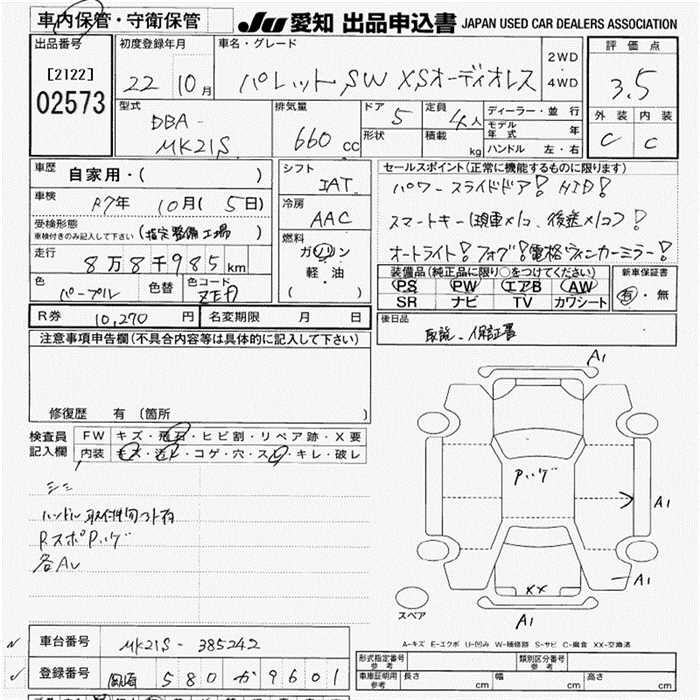 車内保管・守衛保管 JU 愛知 出品申込書 JAPAN USED CAR DEALERS ASSOCIATION
出品番号 初度登録年月 車名・グレード 評価点
[2122] 22 10月 パレットSW XSオーディオレス 2WD・4WD 3.5
02573 型式 排気量 ドア 5 定員 4人 ディーラー・並行 外装 内装
DBA-MK21S 660cc 形状 積載 kg モデル年式 年 C C
ハンドル 左・右
車歴 自家用・( ) シフト IAT セールスポイント(正常に機能するものに限ります)
車検 R7年 10月(5日) 冷房 AAC パワースライドドア! HID!
受検形態 車検付きのみ記入して下さい (指定整備工場) スマートキー(現車×1コ、後送×1コ)!
走行 8万8千985km 燃料 ガソリン・軽油・( ) オートライト!フォグ!電格ウィンカーミラー!
色 パープル 色替 色コード ZEA
装備品(純正品に限り○をつけてください) 新車保証書
PS PW エアB AW 有・無
SR ナビ TV カワシート
R券 10,270円 名変期限 月 日 後日品
取説、保証書
注意事項申告欄(不具合内容等は具体的に記入して下さい)
修復歴 有(箇所 )
検査員記入欄 FW キズ・飛石・ヒビ割・リペア跡・X要
内装 キズ・汚レ・コゲ・穴・スレ・キレ・破レ
シミ
ハンドル取付
RスポPハゲ
A1
Pハゲ
A1
A1
XX
A1
スペア
A-キズ E-エクボ U-凹み W-補修跡 S-サビ C-腐食 XX-交換済
車台番号 MK21S-385242
登録番号 580 か 9601
形式指定番号 参考 類別区分番号 参考
車庫証明用 参考 長さ cm 幅 cm 高さ cm